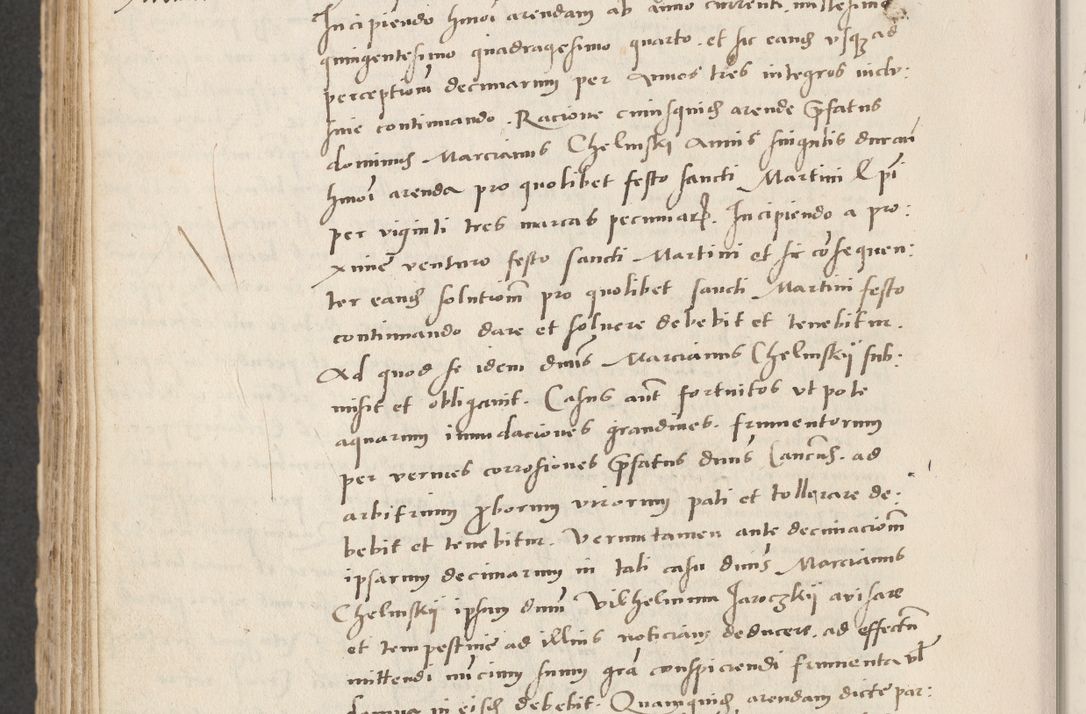 Incipiendo hmoi arendam ab anno currenti millesimo
quingentesimo quadragesimo quarto. et sic eand usqz ad
perceptiom decimarum per Annos tres integros inclu:
sive continuando. Racione cuiusquid arende pfatus
dominus Marcianus Chelmski Annis singulis duran
hmoi arenda pro quolibet festo sancti Martini
per viginti tres marcas pecuniar. Incipiendo a pro:
xime venturo festo sancti Martini et sic cosequen:
ter eand solutiom pro quolibet sancti Martini festo
continuando dare et solvere debebit et tenebitur.
Ad quod se idem dnus Marcianus Chelmskij sub:
misit et obligavit. Casus aut fortuitos ut pote
aquarum inundaciones grandines. frumentorum
per vermes corrosiones pfatus dnus Cancus. ad
arbitrium proborum virorum pati et tollerare de:
bebit et tenebitur. Verumtamen ante decimaciom
ipsarum decimarum in tali casu dnus Marcianus
Chelmskij ipsum dnum Vilhelmum Jaroczkij avisare
et tempestive ad illius noticiam deducere. ad effectu
mittendi nucium suum gra conspiciendi frumenta vl
in eisd debebit. Quamquid arendam dicte par: